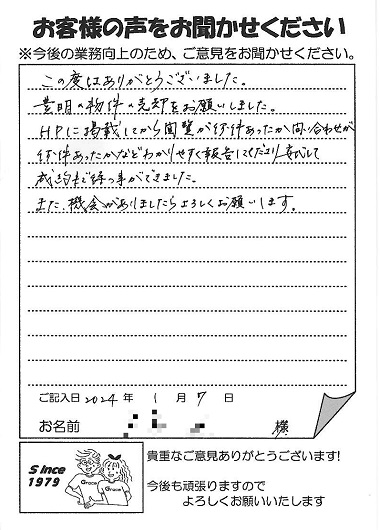 お客様の声をお聞かせください
※今後の業務向上のため、ご意見をお聞かせください。
この度はありがとうございました。
豊明の物件の売却をお願いしました。
HPに掲載してから閲覧が何件あったか問い合わせが
何件あったかなどわかりやすく報告してくださり安心して
成約まで待つ事ができました。
また、機会がありましたらよろしくお願いします。
ご記入日 2024 年 1 月 7 日
お名前 様
Since
1979
Grace
Grace
貴重なご意見ありがとうございます!
今後も頑張りますので
よろしくお願いいたします